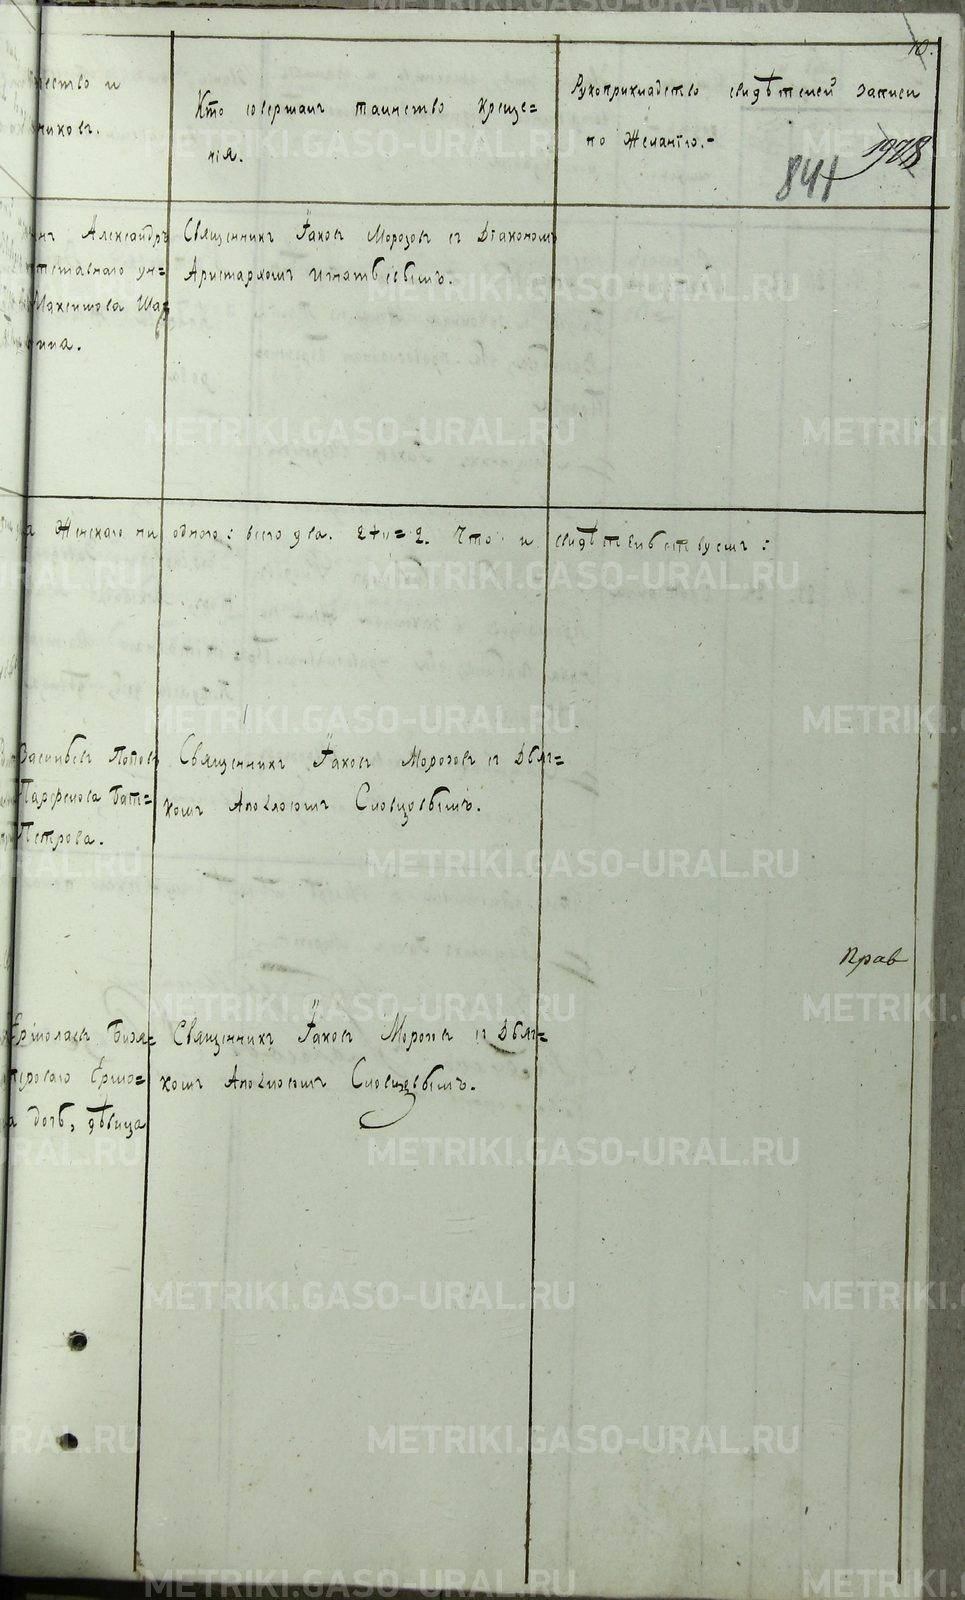 10.
чество и
никовъ.
Кто совершалъ таинство креще=
нія.
Рукоприкладство свидѣтелей записи
по желанію.-
841
1928
Александръ
отставнаго ун=
Максимова Шар
ина.
Священникъ Іаковъ Морозовъ съ Діакономъ
Аристархомъ Игнатьевымъ.
Женскаго ни одного: всего два. 2+0=2. Что и свидѣтельствуемъ:
Васильевъ Поповъ
Парфенова Бат=
Петрова.
Священникъ Іаковъ Морозовъ съ Дьяч=
комъ Аполлосомъ Словцовымъ.
Прав
Ермолаевъ Бизя=
Ермо=
дочь, дѣвица
Священникъ Іаковъ Морозовъ съ Дьяч=
комъ Аполлосомъ Словцовымъ.
METRIKI.GASO-URAL.RU